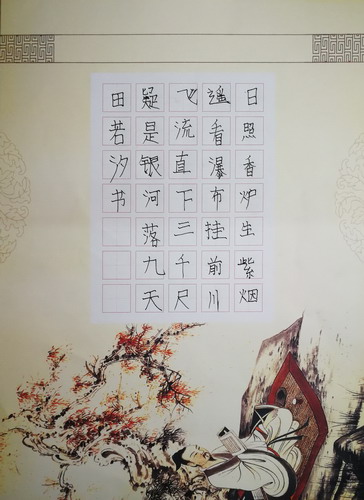 日照香炉生紫烟
遥看瀑布挂前川
飞流直下三千尺
疑是银河落九天
田若汐书